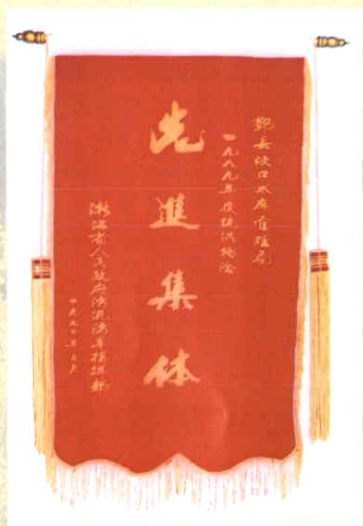 鄞县皎口水库管理局
一九八九年度抗洪抢险
先進集体
浙江省人民政府防汛防旱指挥部
一九九〇年